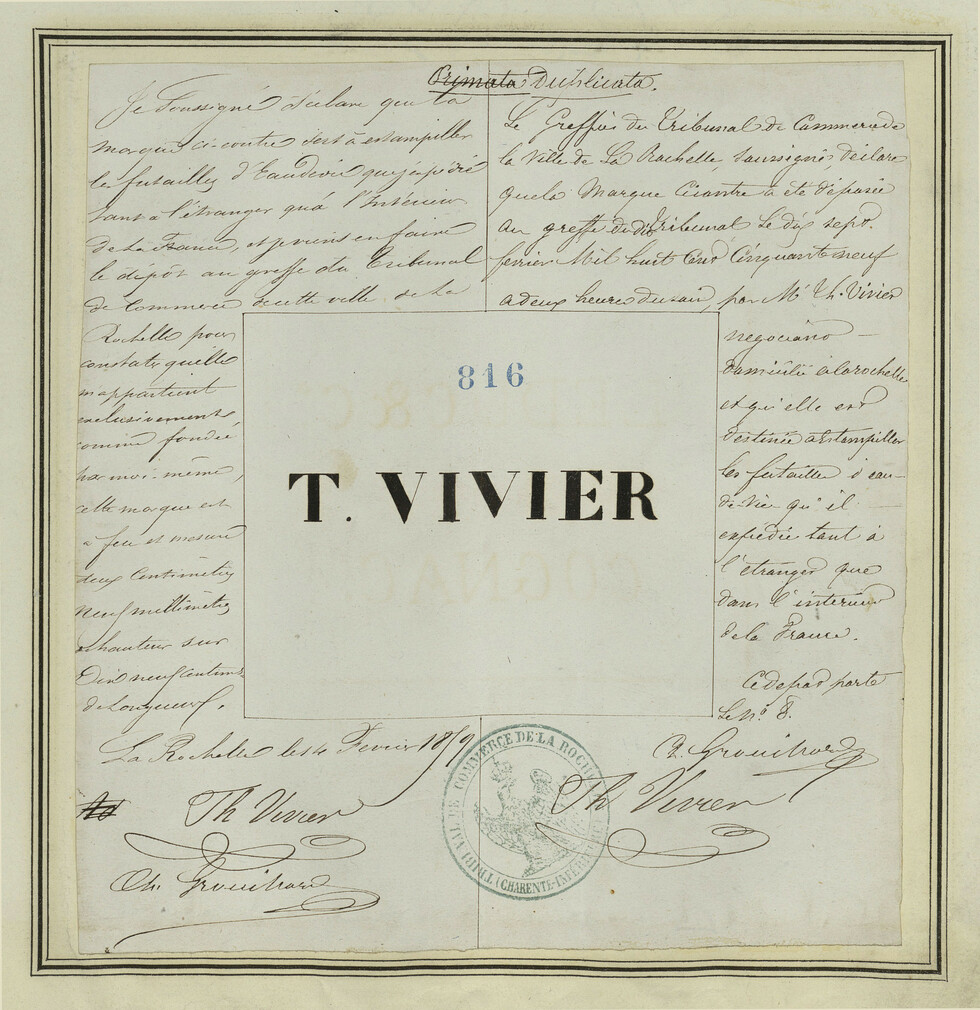 Primata Duplicata.
Je Soussigné déclare que la
marque ci-contre sert à estampiller
les futailles d'Eaudevie que j'expédie
tant à l'étranger qu'à l'Intérieur
de la France, et je viens en faire
le dépôt au greffe du Tribunal
de Commerce de cette ville de La
Rochelle pour
constater qu'elle
m'appartient
exclusivement
comme fondée
par moi-même,
cette marque est
à feu et mesure
deux Centimètres
Neuf millimètres
hauteur sur
Dix neuf Centim
de Longueur.
La Rochelle le Fevrier 1859
Th Vivier
Ch. Grouihard
Le Greffier du Tribunal de Commerce de
la Ville de La Rochelle, Soussigné déclare
que la Marque Ci contre a été déposée
au greffe du dit tribunal Le dix sept.
fevrier Mil huit Cent Cinquante neuf
a deux heures du soir, par Mr Th. Vivier
negociant
domicilié à la rochelle
et qu'elle est
destinée a estampiller
les futaille d'eau-
de-Vie qu'il
expédie tant à
l'étranger que
dans l'intérieur
de la France.
Ce depot porte
Le No. 8.
Grouihard
Th Vivier
816
T. VIVIER
TRIBUNAL DE COMMERCE DE LA ROCHELLE
(CHARENTE-INFERIEURE)